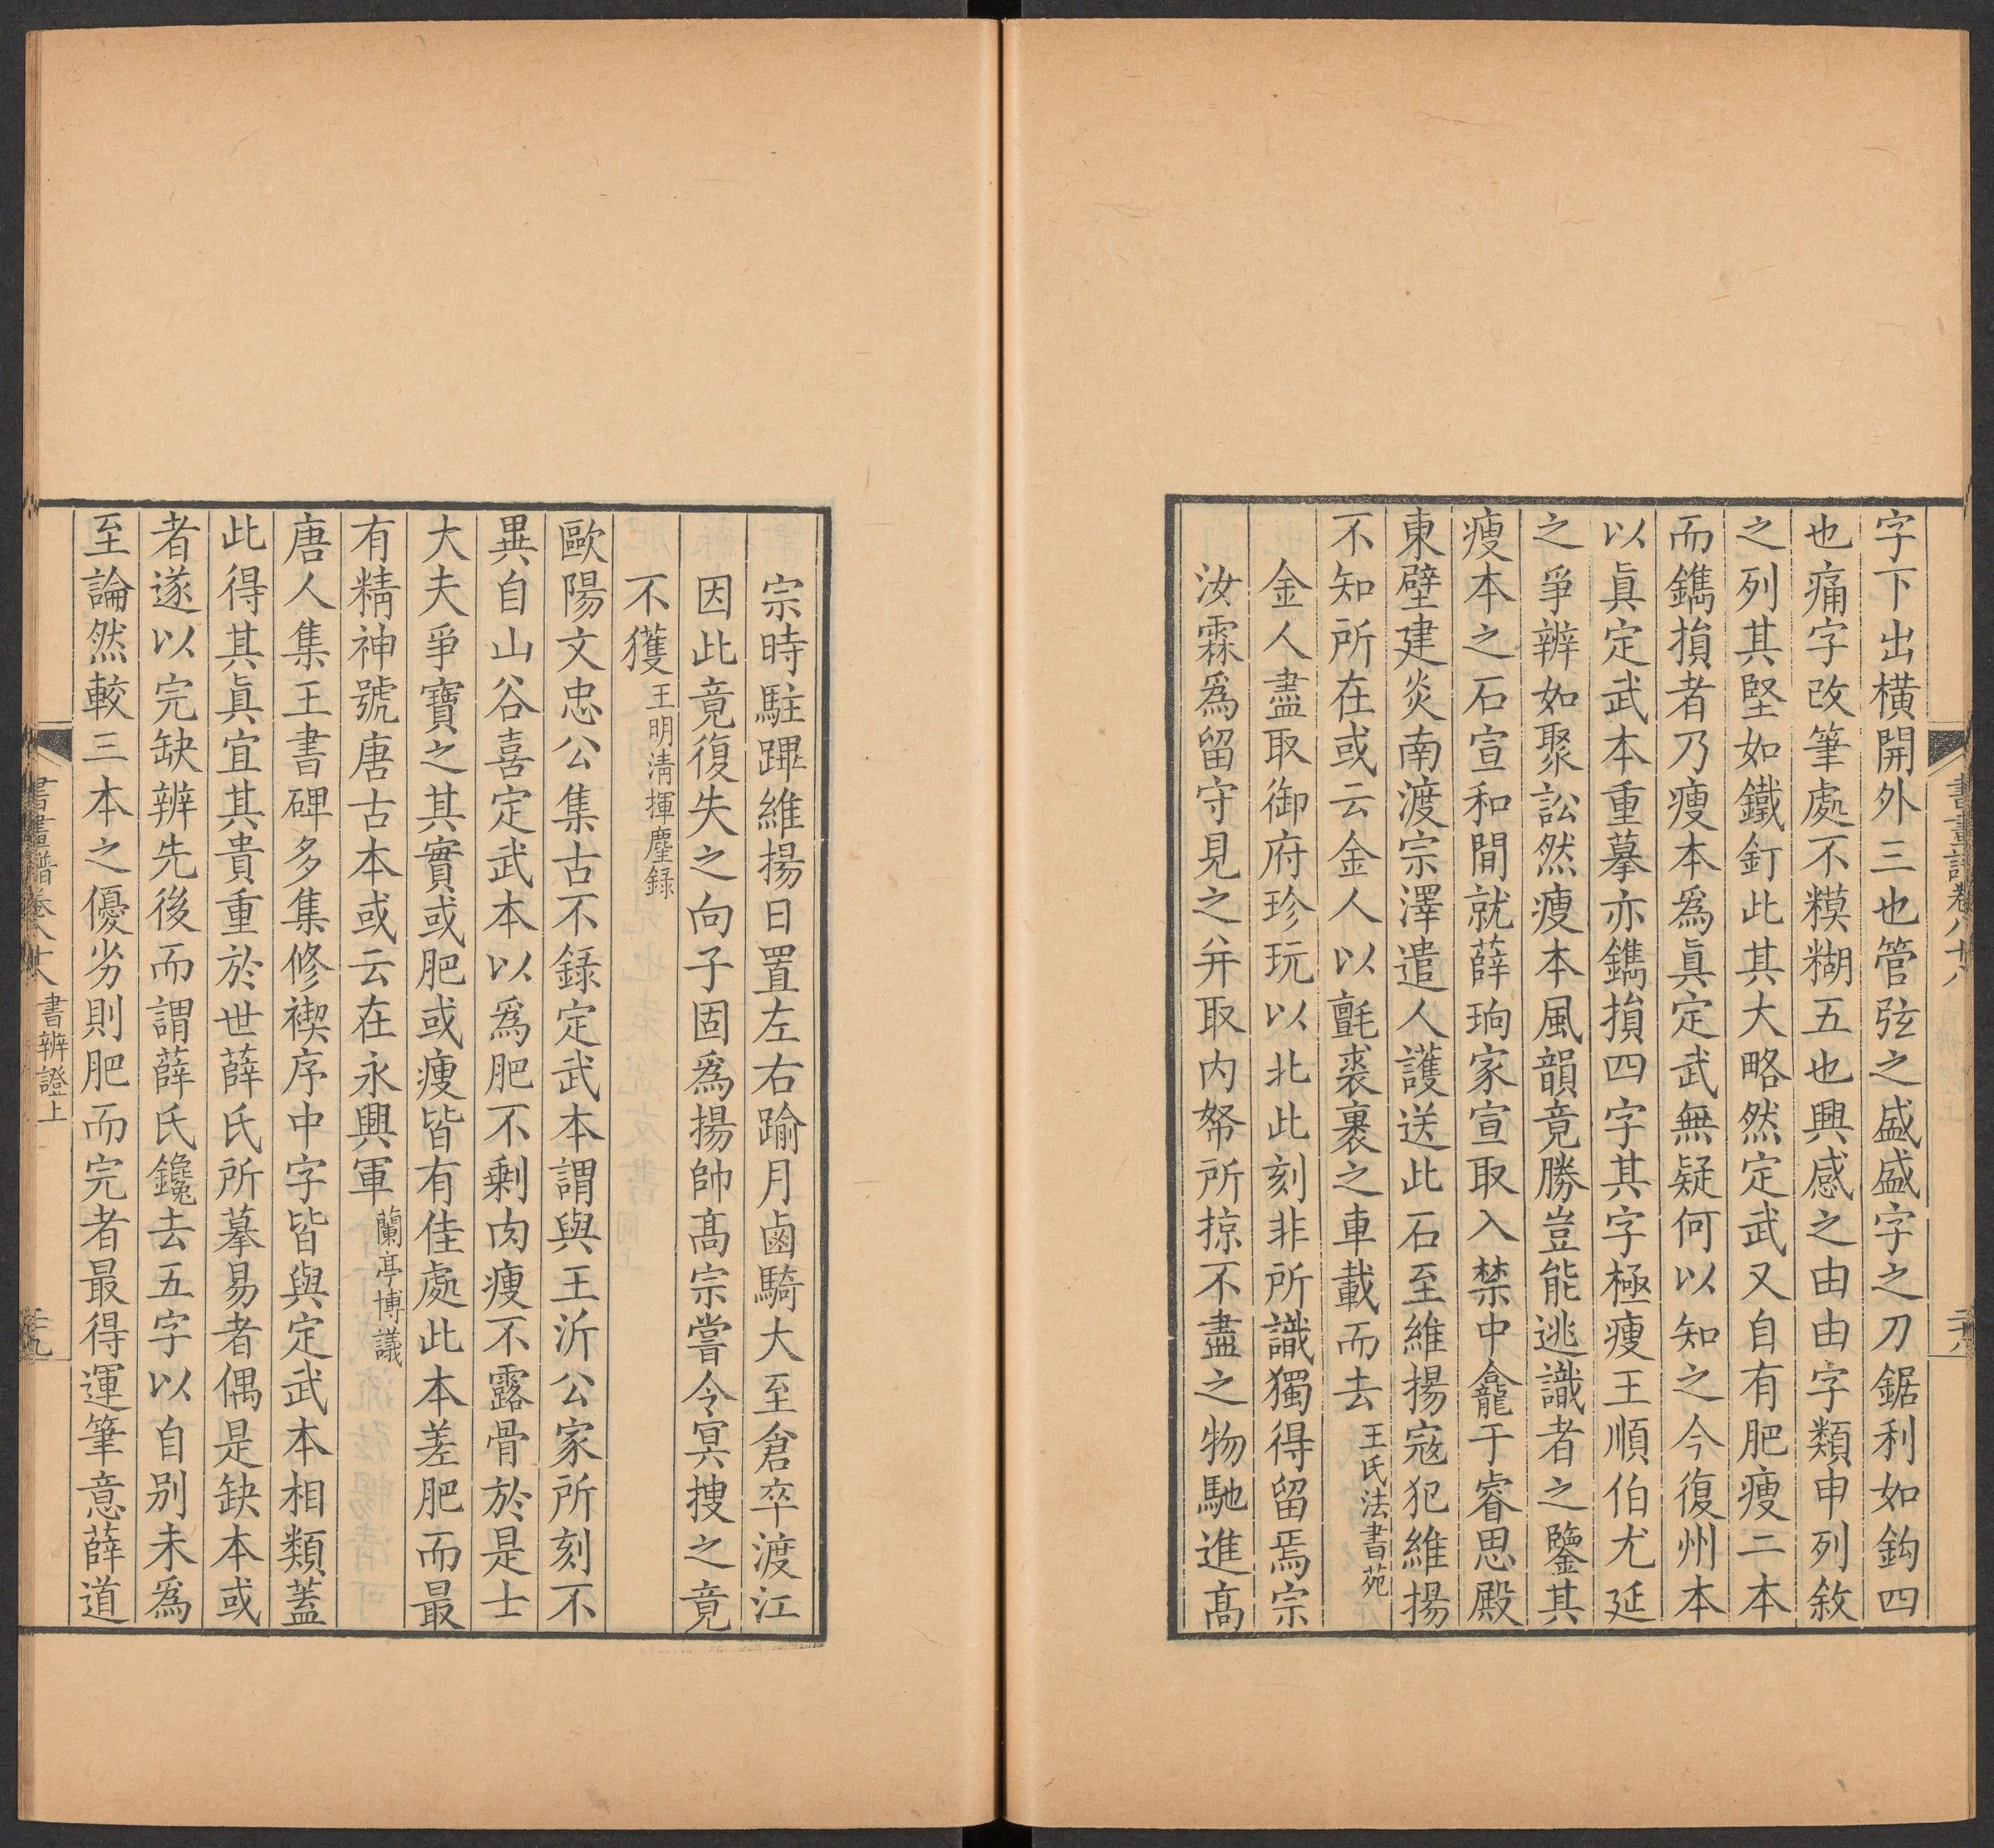 書畫譜卷八十八
二十八
字下出橫開外三也管弦之盛盛字之刀鋸利如鈎四
也痛字改筆處不糢糊五也興感之由由字類申列敘
之列其堅如鐵釘此其大略然定武又自有肥瘦二本
而鐫損者乃瘦本爲眞定武無疑何以知之今復州本
以眞定武本重摹亦鐫損四字其字極瘦王順伯尤延
之爭辨如聚訟然瘦本風韻竟勝豈能逃識者之鑒其
瘦本之石宣和間就薛珦家宣取入禁中龕于睿思殿
東壁建炎南渡宗澤遣人護送此石至維揚寇犯維揚
不知所在或云金人以氈裘裹之車載而去王氏法書苑
金人盡取御府珍玩以北此刻非所識獨得留焉宗
汝霖爲留守見之幷取内帑所掠不盡之物馳進高
宗時駐蹕維揚日置左右踰月鹵騎大至倉卒渡江
因此竟復失之向子固爲揚帥高宗嘗令冥搜之竟
不獲王明清揮麈録
歐陽文忠公集古不錄定武本謂與王沂公家所刻不
異自山谷喜定武本以爲肥不剩肉瘦不露骨於是士
大夫爭寶之其實或肥或瘦皆有佳處此本差肥而最
有精神號唐古本或云在永興軍蘭亭博議
唐人集王書碑多集修禊序中字皆與定武本相類蓋
此得其眞宜其貴重於世薛氏所摹易者偶是缺本或
者遂以完缺辨先後而謂薛氏鑱去五字以自別未爲
至論然較三本之優劣則肥而完者最得運筆意薛道
書畫譜卷八十八
書辨證上
二十九